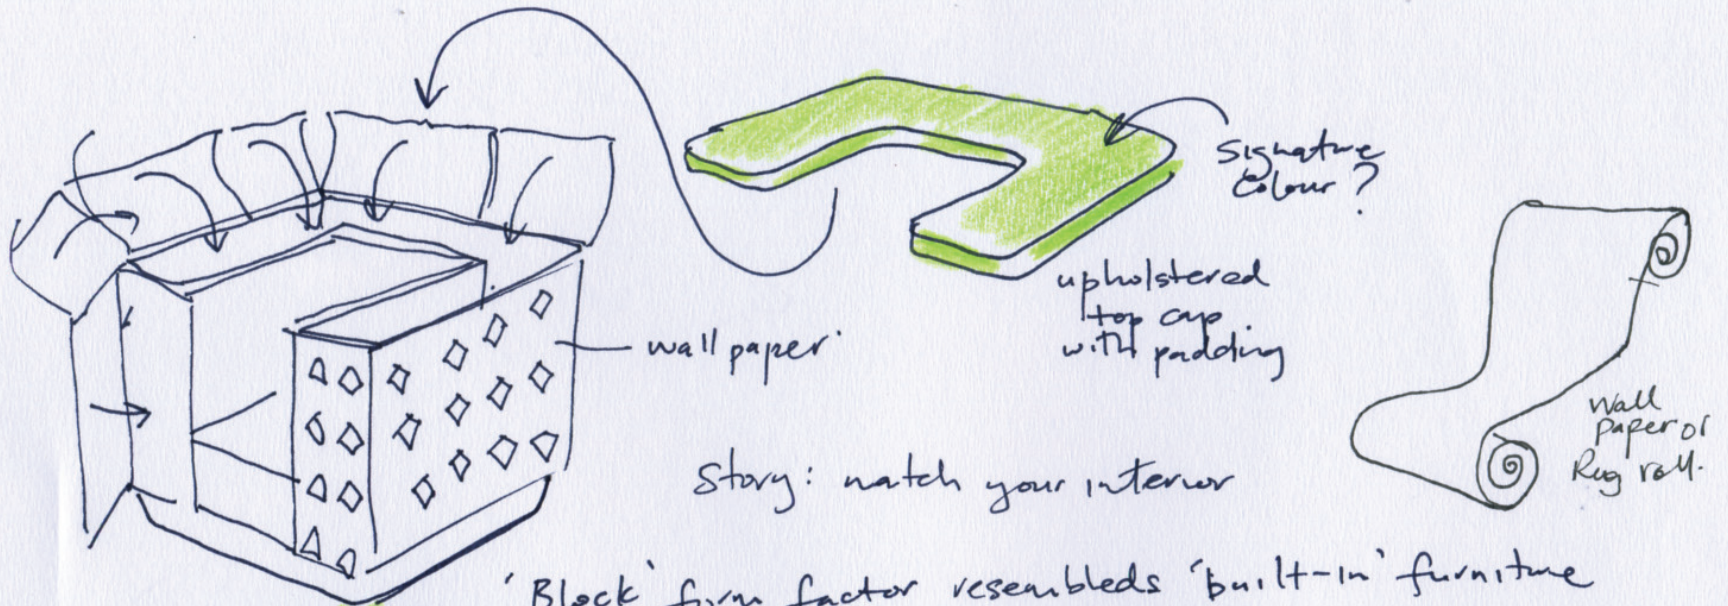 Signature
Colour?
upholstered
top cap
with padding
wall paper
Wall
paper or
Rug roll.
Story: match your interior
'Block' form factor resembleds 'built-in' furniture